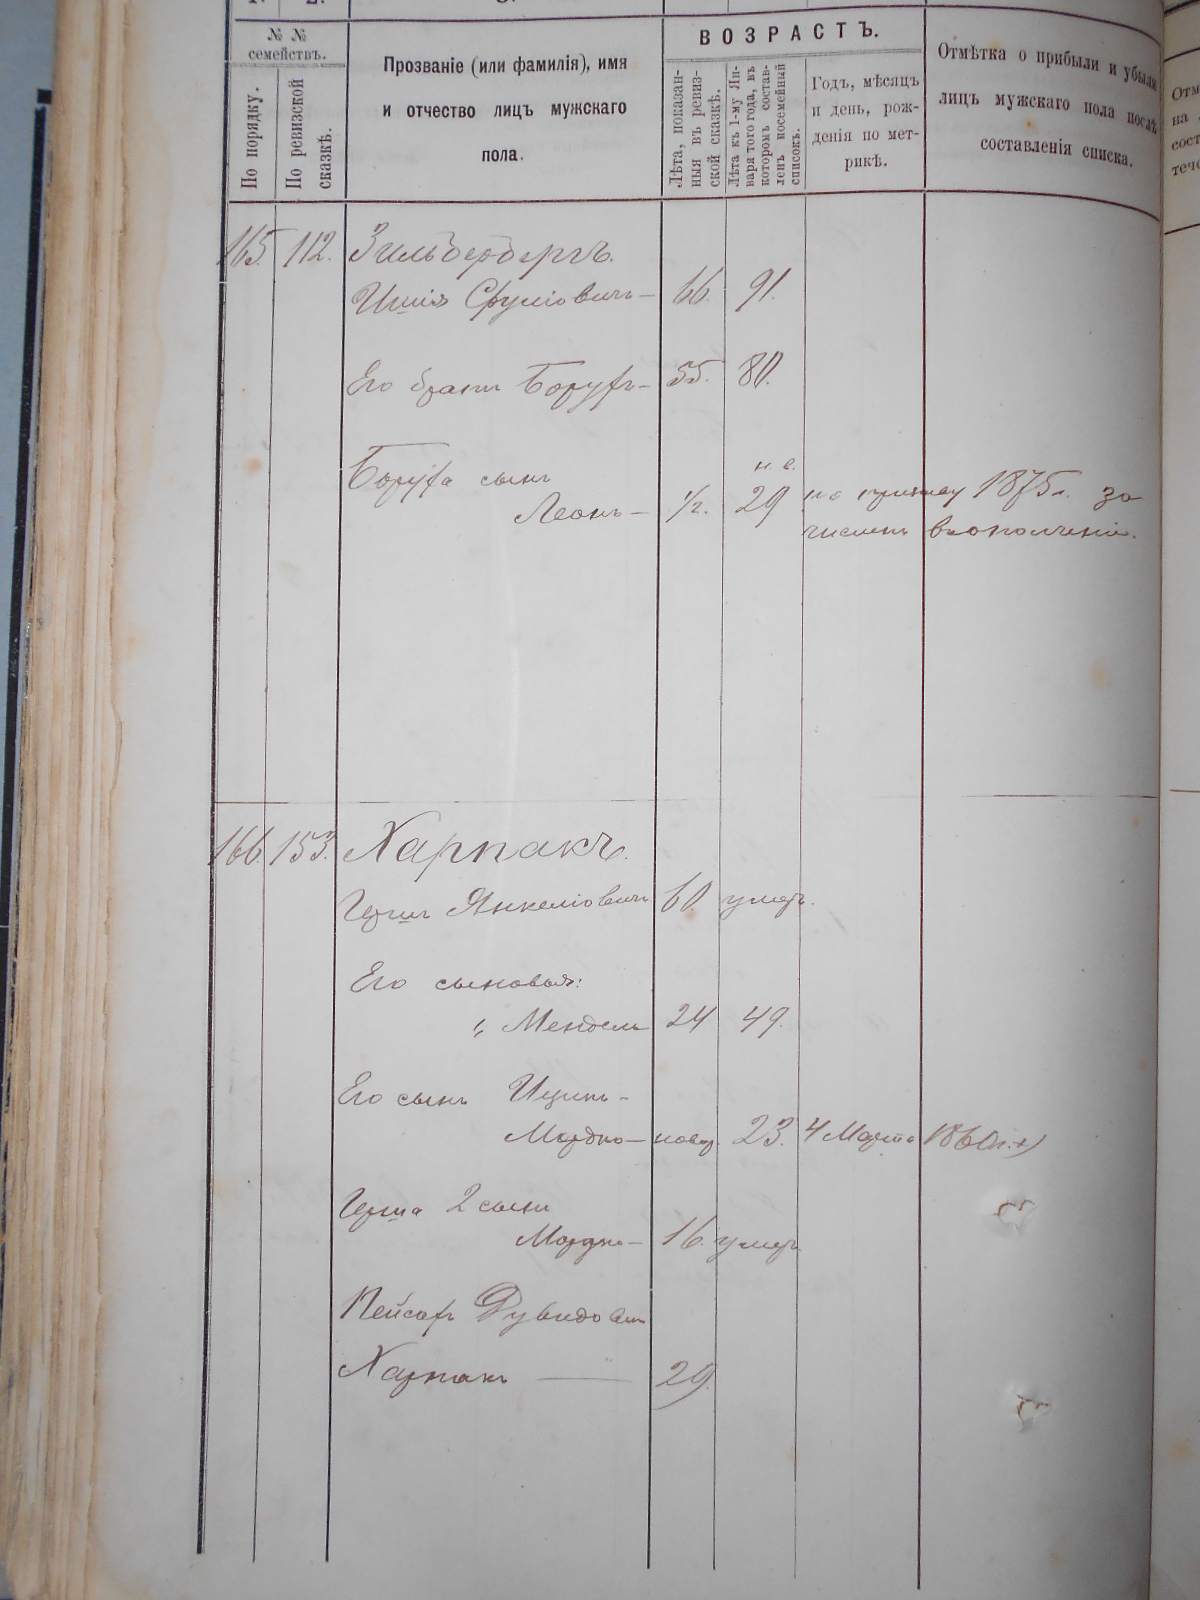 № №
семействъ.
По порядку.
По ревизской
сказкѣ.
Прозваніе (или фамилія), имя
и отчество лицъ мужскаго
пола.
ВОЗРАСТЪ.
Лѣта, показан-
ныя въ ревиз-
ской сказкѣ.
Лѣта къ 1-му Ян-
варя того года, въ
которомъ состав-
ленъ посемейный
списокъ.
Годъ, мѣсяцъ
и день, рож-
денія по мет-
рикѣ.
Отмѣтка о прибыли и убыли
лицъ мужскаго пола послѣ
составленія списка.
165. 112. Зильбербергъ.
Ицій Сруліовичъ — 66. 91.
Его братъ Борухъ — 55. 80.
Боруха сынъ
н. в.
Леонъ — 1/2. 29 по призыву 1875 г. за
численъ в ополченіе.
166. 153. Харпакъ.
Герш Янкеліовичъ 60. умер.
Его сыновья:
1, Мендель 24 49.
Его сынъ Ицикъ-
Мордко — новор. 23. 4 Марта 1860 г. +)
Герша 2 сынъ
Мордко — 16. умер.
Пейсахъ Дувидовичъ
Харпакъ — 29.